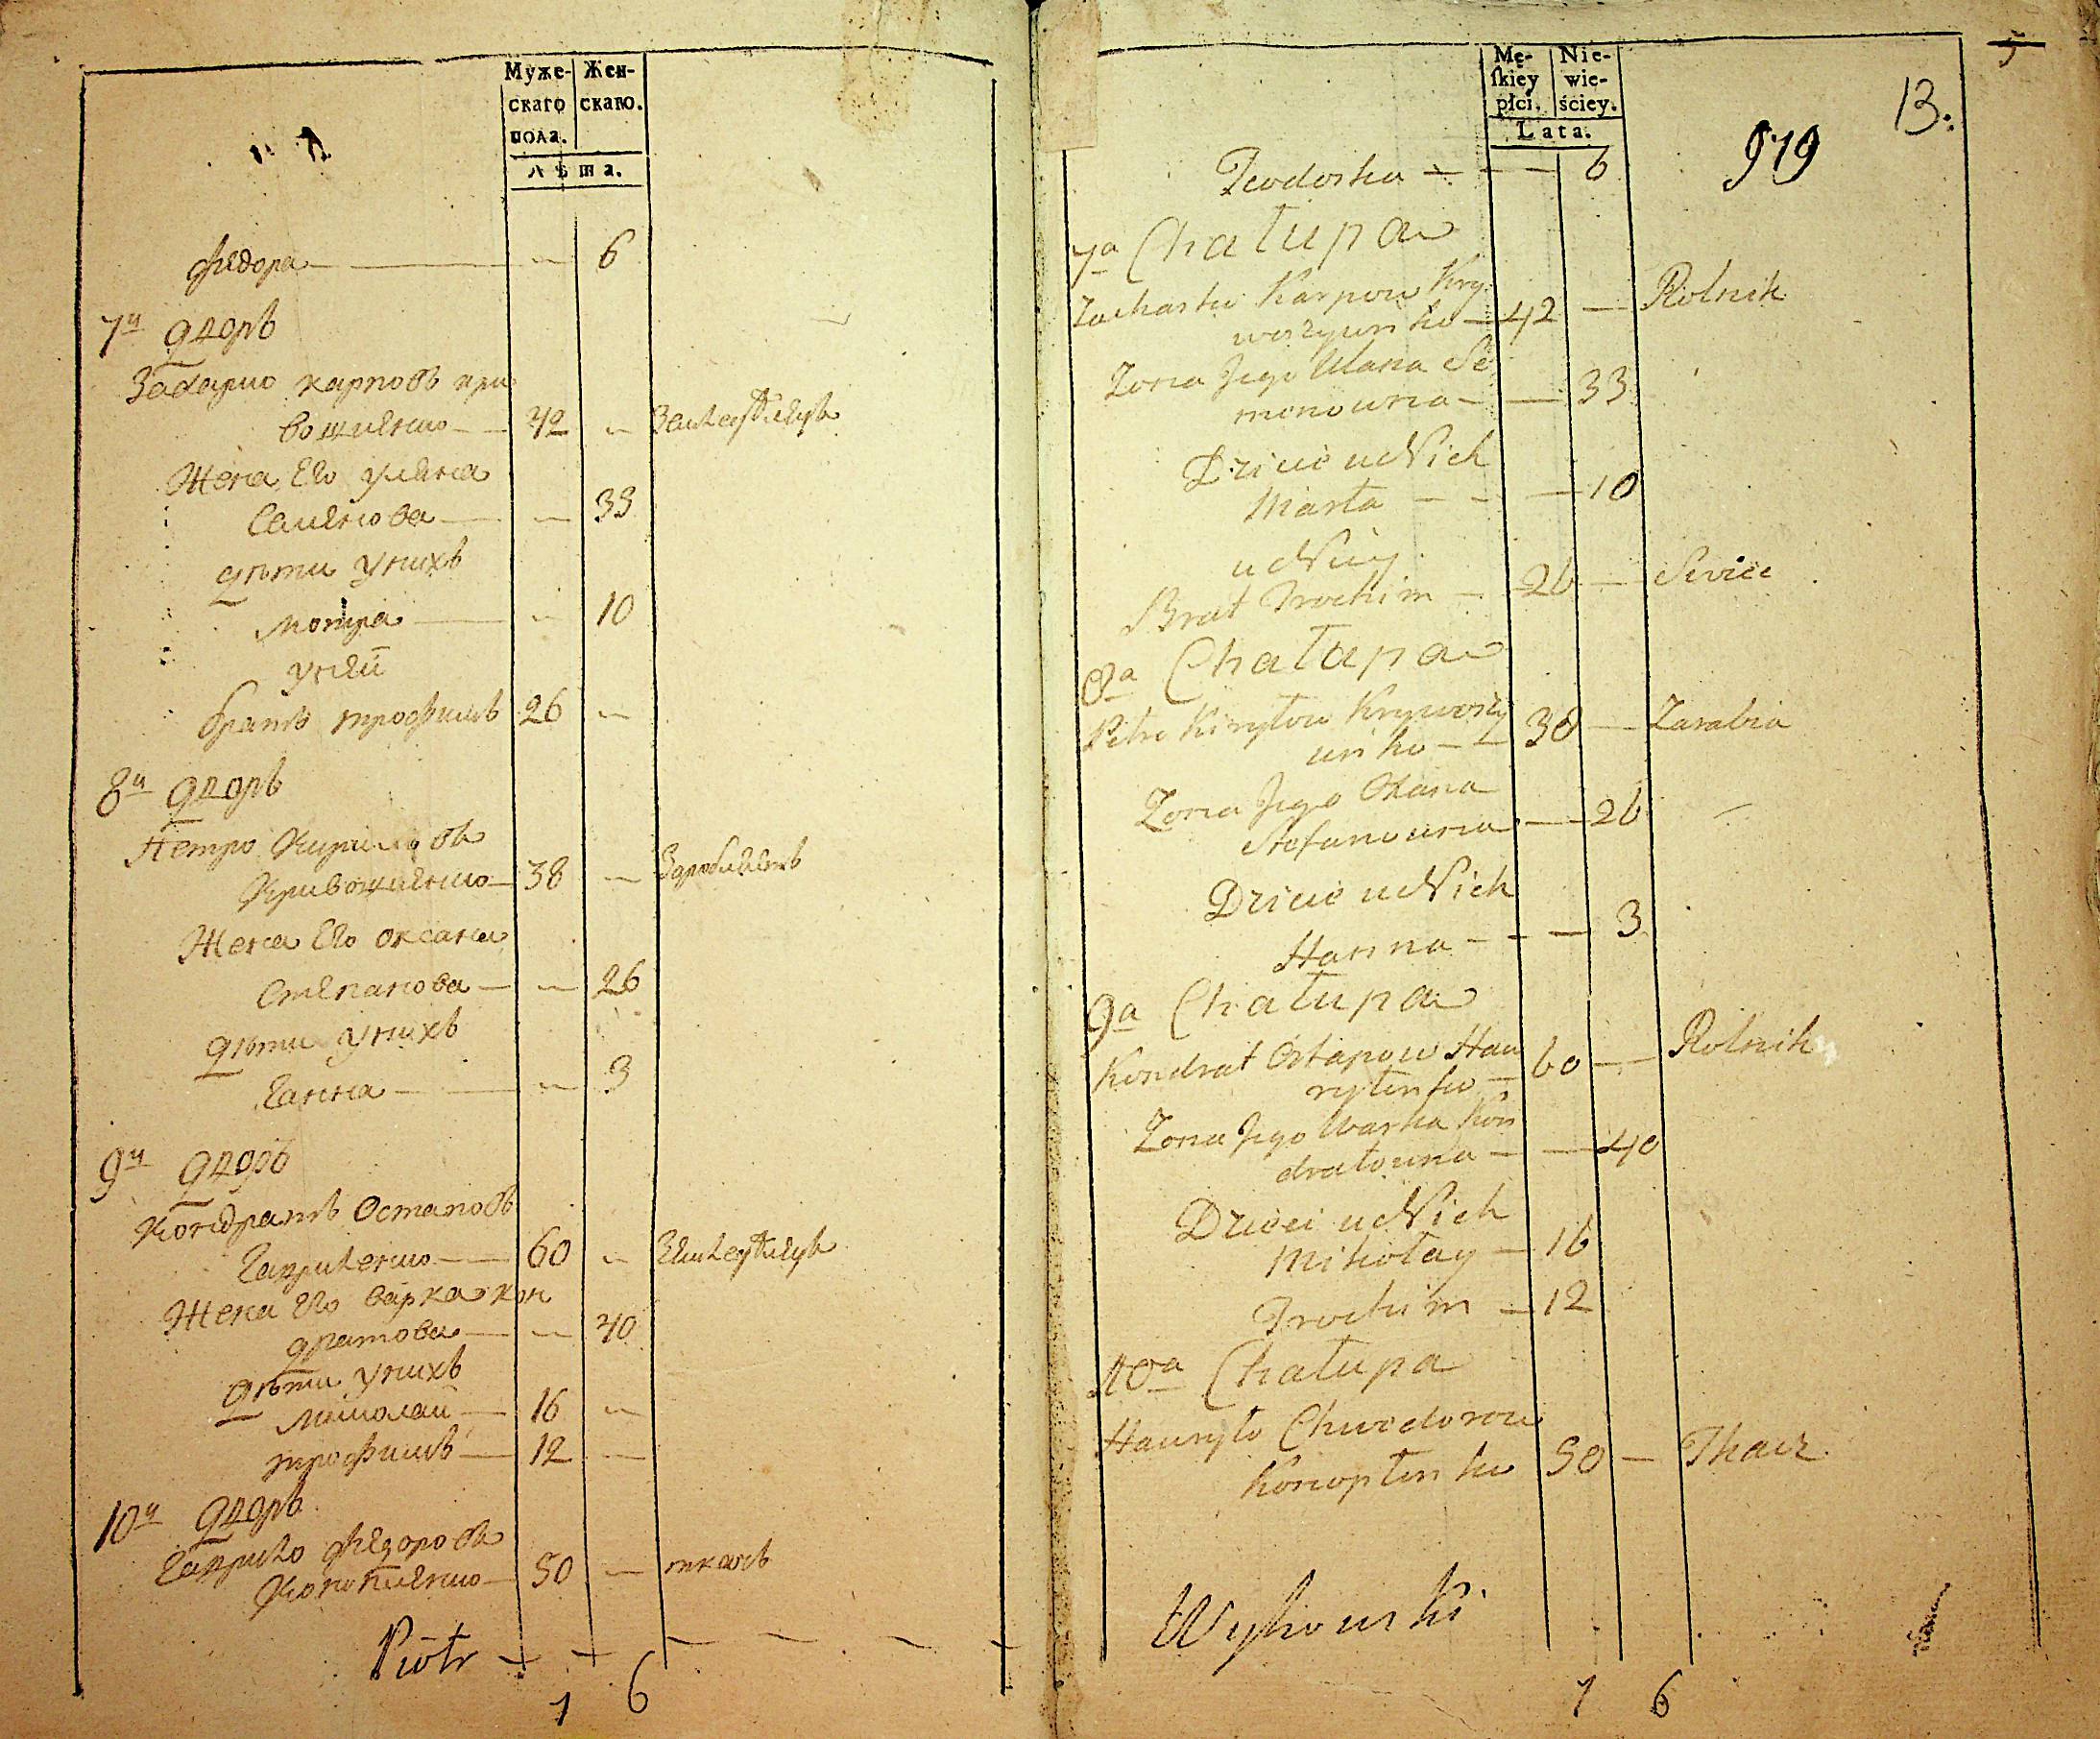 Муже- Жен-
скаго скаго.
пола.
Лѣта.
Федора — — 6
7й дворъ
Захарко карповъ кри
вошиенко — 42 —
Жена Его уляна
Семенова — — 33
дѣти унихъ
мотря — — 10
уней
братъ трофимъ 26 —
8й дворъ
Петро Кириловъ
Кривошиенко — 38 —
Жена Его оксана
Степанова — — 26
дѣти унихъ
Ганна — — 3
9й дворъ
Кондратъ Остаповъ
Гавриленко — 60 —
Жена Его варка кон
дратова — — 40
дѣти унихъ
миколай — 16 —
трофимъ — 12 —
10й дворъ
Гаврило федоровъ
Конопленко — 50 — ткачъ
Piotr
1 6
5
13.
919
Mę- Nie-
ſkiey wie-
płci. ściey.
Lata.
Teodoska — — 6
7a Chałupa
Zacharko Karpow Kry
woszyinko — 42 — Rolnik
Zona Jego Ulana Se
menowna — — 33
Dzieci u Nich
Marta — — 10
u Niey
Brat Trochim — 26 —
8a Chałupa
Petro Kiryłow Krywoszy
inko — 38 — Zarabia
Zona Jego Oxana
Stefanowna — — 26
Dzieci u Nich
Hanna — — 3
9a Chałupa
Kondrat Ostapow Haw
rylenko — 60 — Rolnik
Zona Jego Warka Kon
dratowna — — 40
Dzieci u Nich
Mikołay — 16
Trochim — 12
10a Chałupa
Hawryło Chwedorow
Konoplenko 50 — Tkacz
Wyhowski
1 6